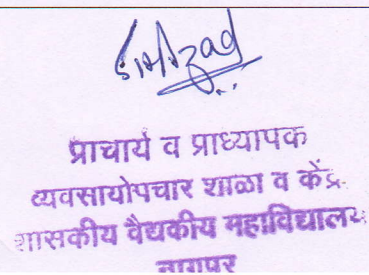 प्राचार्य व प्राध्यापक
व्यवसायोपचार शाळा व केंद्र
शासकीय वैद्यकीय महाविद्यालय
नागपूर